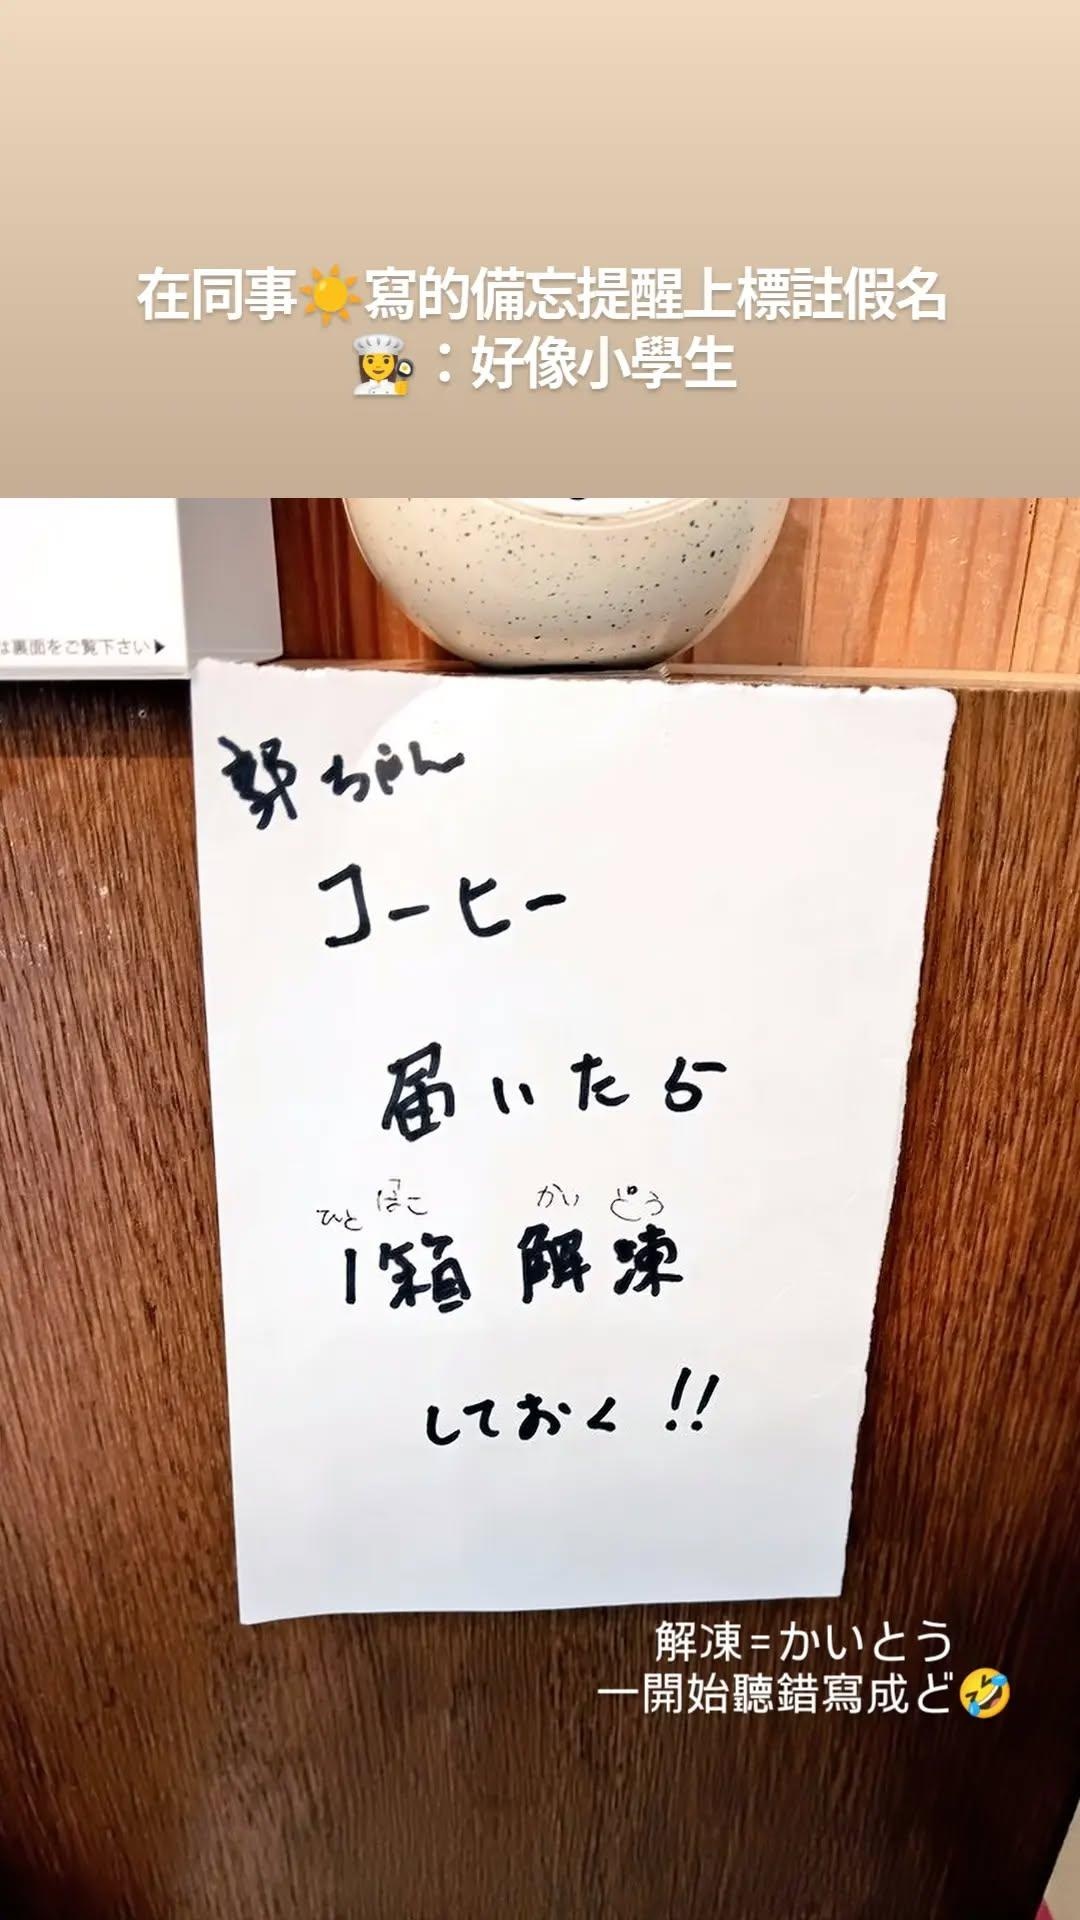 在同事☀️寫的備忘提醒上標註假名
👩‍🍳：好像小學生
は裏面をご覧下さい▶
郭ちゃん
コーヒー
届いたら
ひと ばこ かい どう
1箱 解凍
しておく!!
解凍=かいとう
一開始聽錯寫成ど🤣